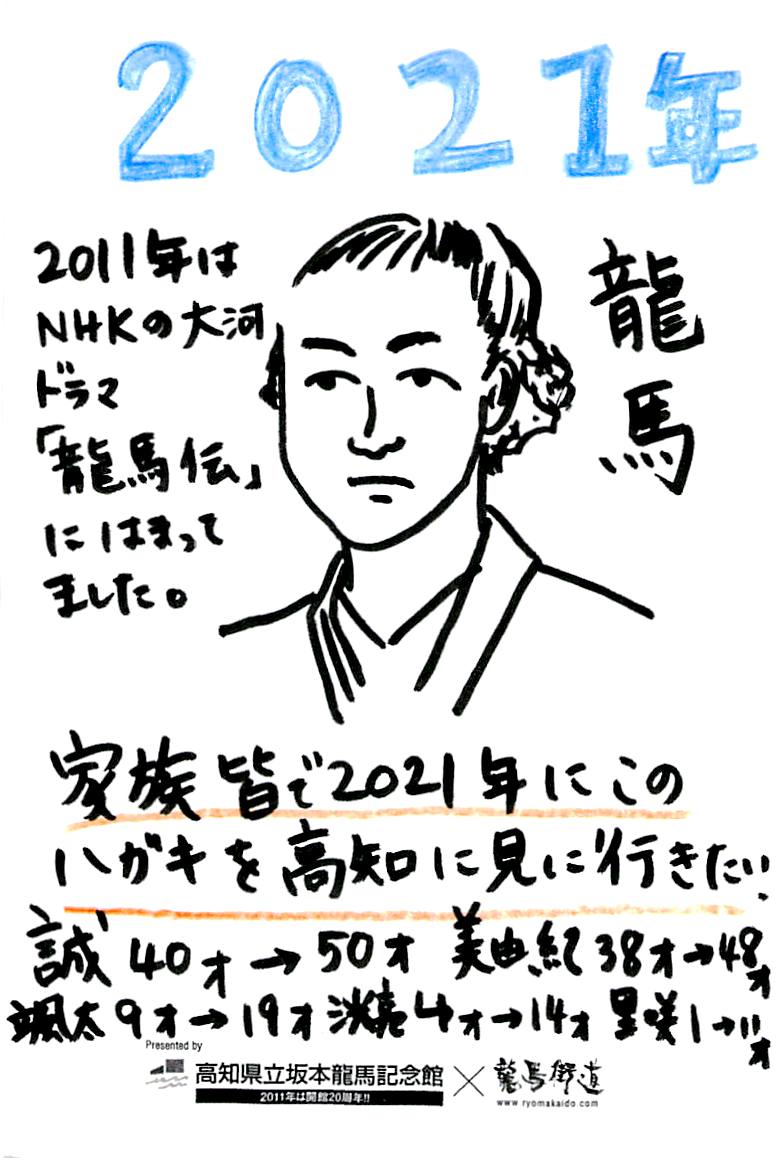 2021年
2011年は
NHKの大河
ドラマ
「龍馬伝」
にはまって
ました。
龍
馬
家族皆で2021年にこの
ハガキを高知に見に行きたい!
誠 40才→50才 美由紀38才→48才
颯太9才→19才 洸亮4才→14才 里咲1→11才
Presented by
高知県立坂本龍馬記念館 × 龍馬街道
2011年は開館20周年!!
www.ryomakaido.com